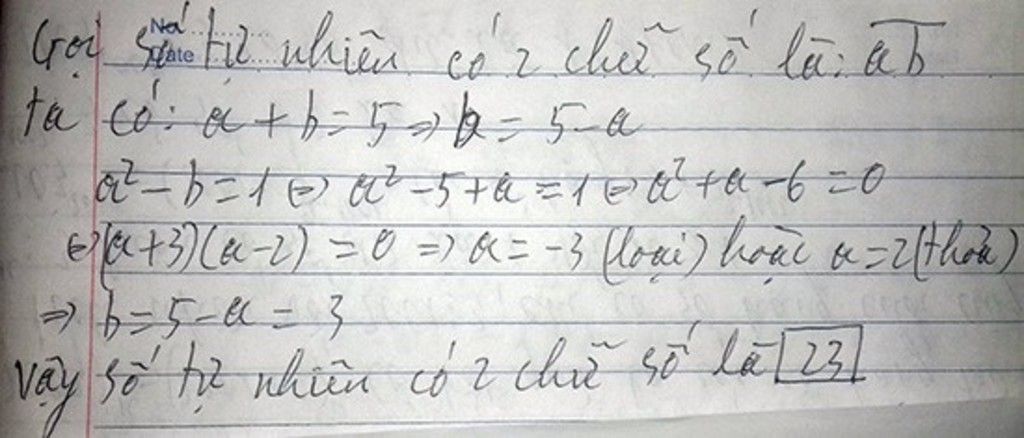 Gọi số tự nhiên có 2 chữ số là: ab
No:
Date
ta có: a + b = 5 => b = 5 - a
a² - b = 1 <=> a² - 5 + a = 1 <=> a² + a - 6 = 0
<=> (a+3)(a-2) = 0 => a = -3 (loại) hoặc a = 2 (thỏa)
=> b = 5 - a = 3
Vậy số tự nhiên có 2 chữ số là 23